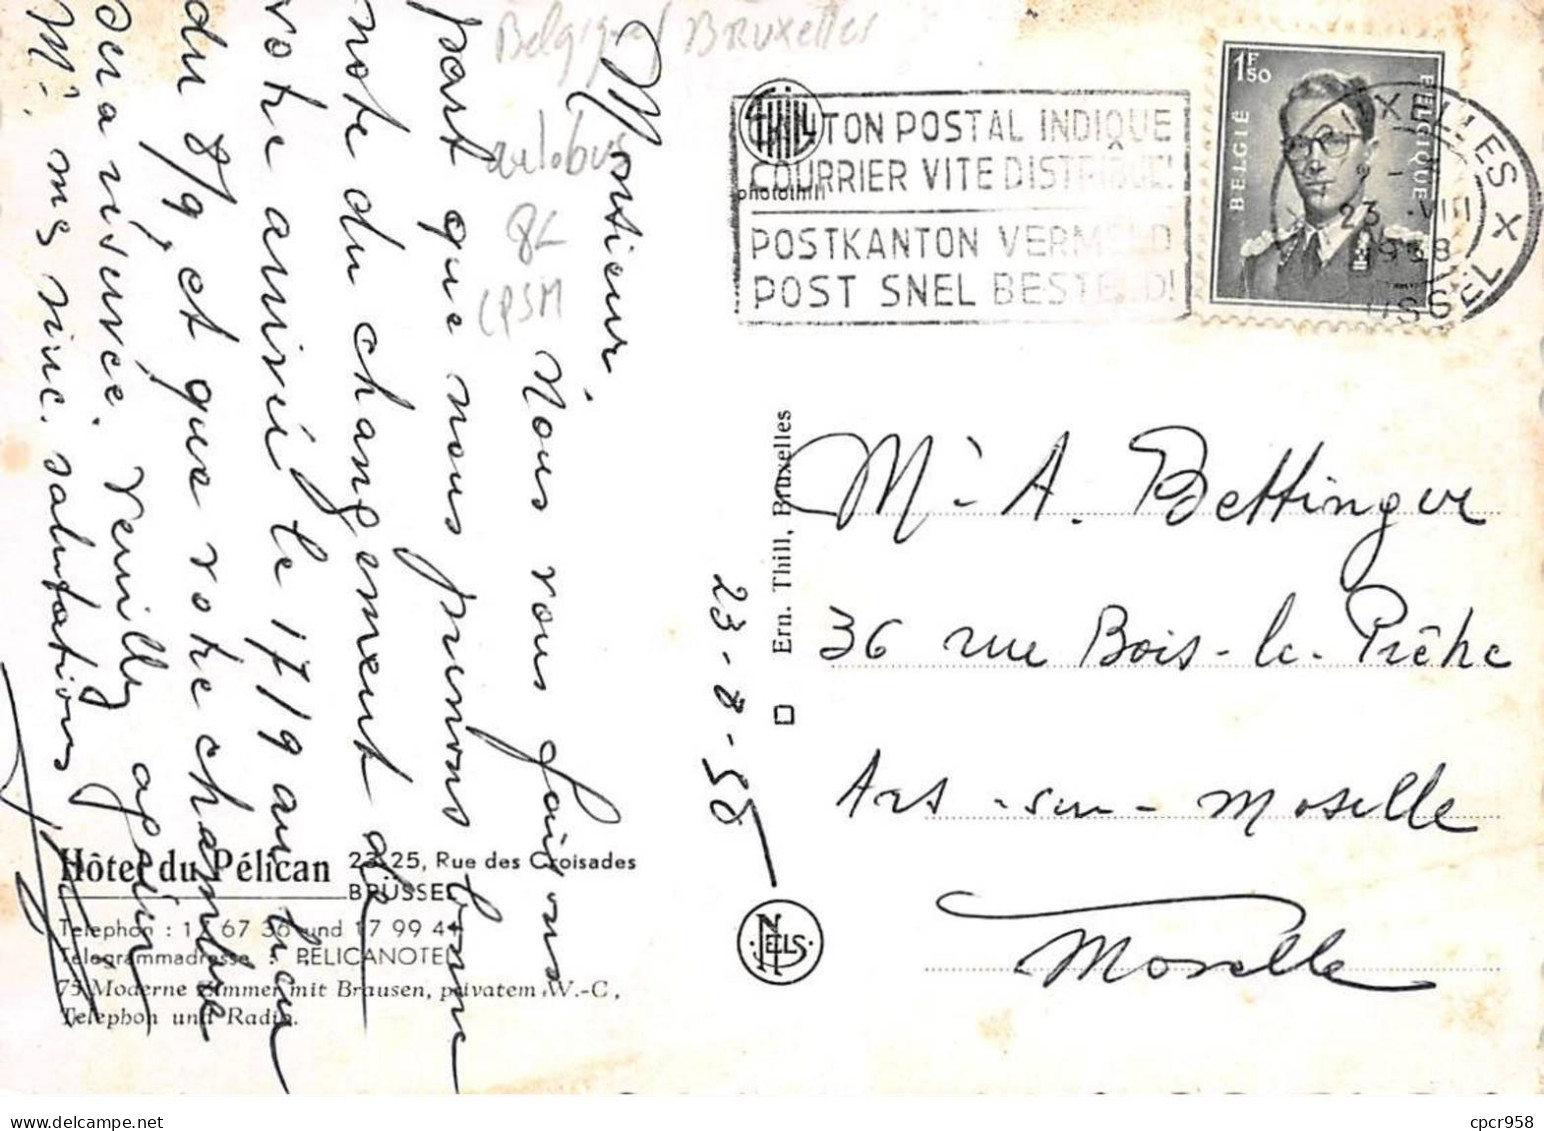 Belgique Bruxelles
autobus
8€
CPSM
Monsieur,
Nous vous faisons
part que nous prenons bonne
note du changement de
votre arrivée le 17/9 au lieu
du 8/9, et que votre chambre
sera réservée. Veuillez agréer
Mr. mes sinc. salutations
THILL
photothill
TON POSTAL INDIQUE
COURRIER VITE DISTRIBUE!
POSTKANTON VERMELD
POST SNEL BESTELD!
1F50
BELGIË
BELGIQUE
BRUXELLES X
23 VIII
1958
BRUSSEL
Ern. Thill, Bruxelles
23-8-58
NELS
Mr A. Bettinger
36 rue Bois-le-Prêtre
Ars-sur-Moselle
Moselle
Hôtel du Pélican
23-25, Rue des Croisades
BRÜSSEL
Telephon : 17 67 36 und 17 99 4
Telegrammadresse : PELICANOTEL
75 Moderne Zimmer mit Brausen, privatem W.-C,
Telephon und Radio.
cpcr958